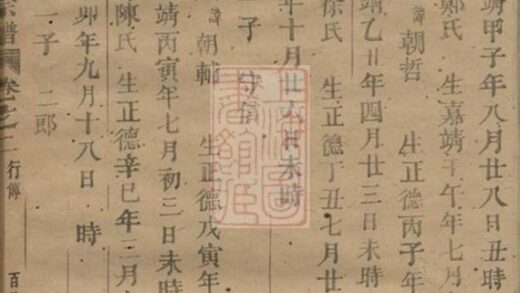 靖甲子年八月廿八日丑時
鄭氏 生嘉靖壬午年七月
諱朝哲 生正德丙子年
靖乙丑年四月廿三日未時
徐氏 生正德丁丑七月廿
年十月廿六日未時
一子 守
諱朝輔 生正德戊寅年
靖丙寅年七月初三日未時
陳氏 生正德辛巳年三月
卯年九月十八日 時
一子 二郎
宗譜 卷之 一 行傳 百